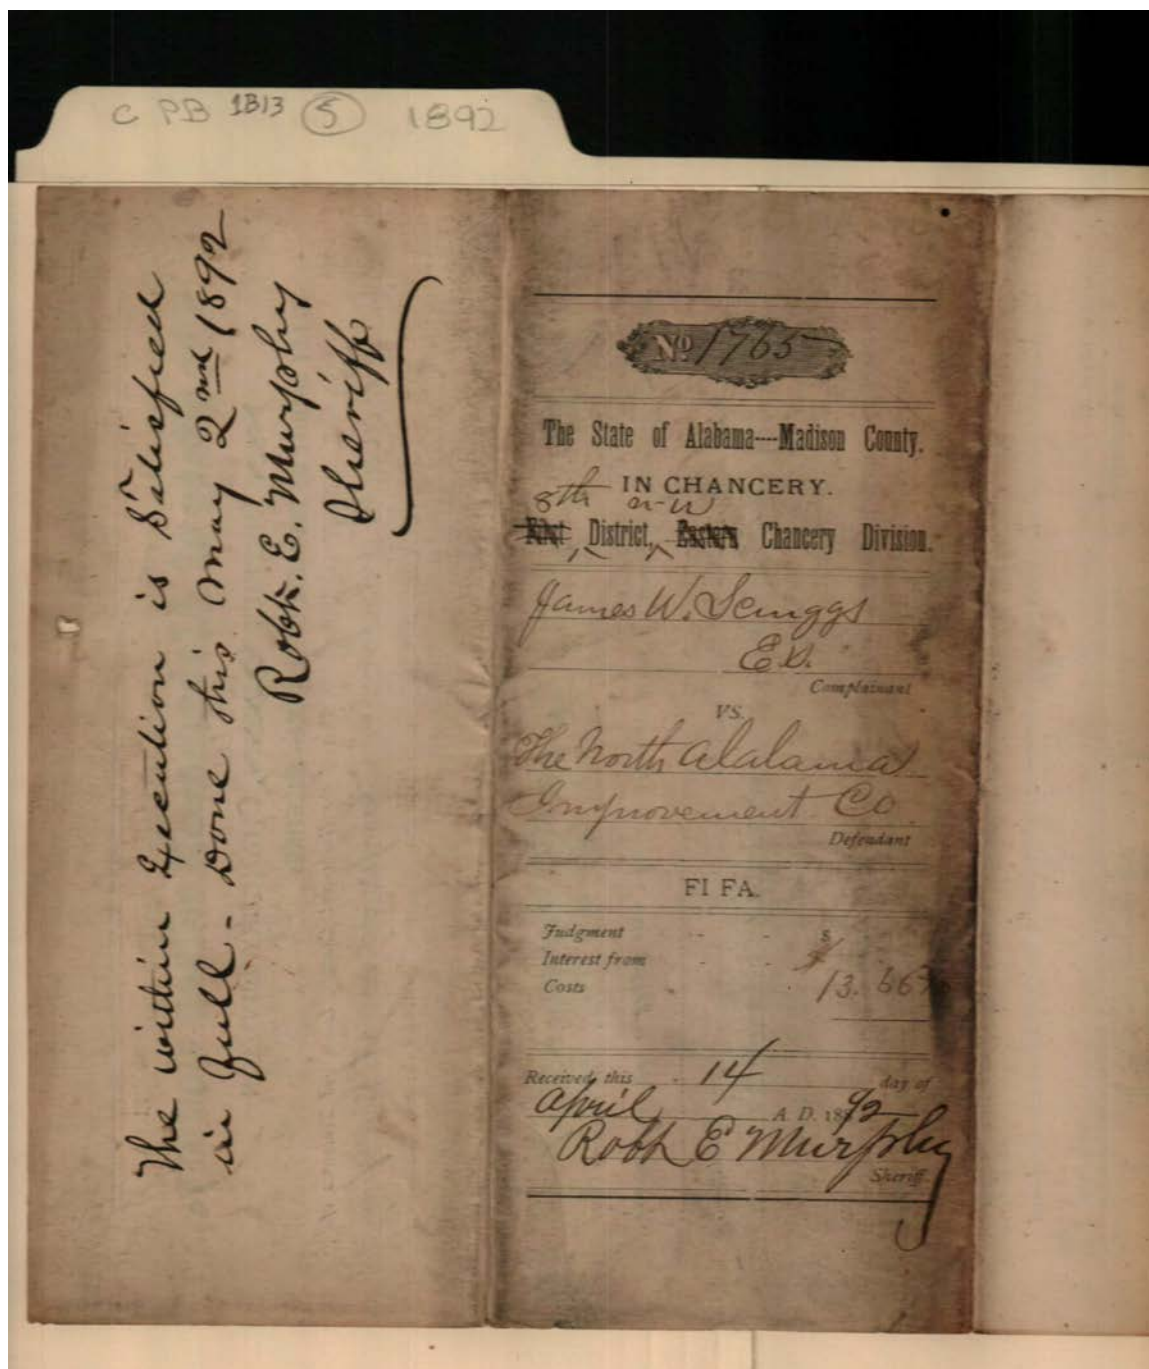 C PB 1B13 5 1892
The within Execution is Satisfied
in full - Done this May 2nd 1892
Robt. E. Murphy
Sheriff
No 1765
The State of Alabama----Madison County.
IN CHANCERY.
8th N-W
First District, Eastern Chancery Division.
James W. Scruggs
Complainant
VS.
The North Alabama
Improvement Co
Defendant
FI FA.
Judgment - - $
Interest from - -
Costs - - 13.66
Received this 14 day of
April A. D. 1892
Robt E Murphy
Sheriff.